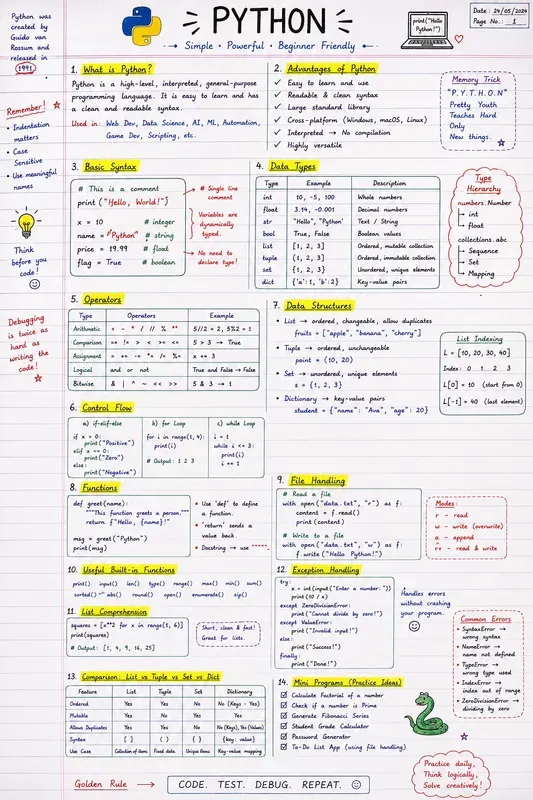 Python was
created by
Guido van
Rossum and
released in
1991
PYTHON
Simple • Powerful • Beginner Friendly
print("Hello
Python!")
Date: 24/05/2024
Page No.: 1
Remember!
• Indentation
matters
• Case
Sensitive
• Use meaningful
names
Think
before you
code!
Debugging
is twice as
hard as
writing the
code!
1. What is Python?
Python is a high-level, interpreted, general-purpose
programming language. It is easy to learn and has
a clean and readable syntax.
Used in: Web Dev, Data Science, AI, ML, Automation,
Game Dev, Scripting, etc.
2. Advantages of Python
✓ Easy to learn and use
✓ Readable & clean syntax
✓ Large standard library
✓ Cross-platform (Windows, macOS, Linux)
✓ Interpreted → No compilation
✓ Highly versatile
Memory Trick
"P.Y.T.H.O.N"
Pretty Youth
Teaches Hard
Only
New things.
3. Basic Syntax
# This is a comment
print ("Hello, World!")
x = 10 # integer
name = "Python" # string
price = 19.99 # float
flag = True # boolean
# Single line
comment
Variables are
dynamically
typed.
No need to
declare type!
4. Data Types
Type Example Description
int 10, -5, 100 Whole numbers
float 3.14, -0.001 Decimal numbers
str "Hello", 'Python' Text / String
bool True, False Boolean values
list [1, 2, 3] Ordered, mutable collection
tuple (1, 2, 3) Ordered, immutable collection
set {1, 2, 3} Unordered, unique elements
dict {'a': 1, 'b': 2} Key-value pairs
Type
Hierarchy
numbers.Number
int
float
collections.abc
Sequence
Set
Mapping
5. Operators
Type Operators Example
Arithmetic + - * / // % ** 5//2 = 2, 5%2 = 1
Comparison == != > < >= <= 5 > 3 → True
Assignment = += -= *= /= %= x += 3
Logical and or not True and False → False
Bitwise & | ^ ~ << >> 5 & 3 → 1
6. Control Flow
a) if-elif-else
if x > 0:
print("Positive")
elif x == 0:
print("Zero")
else:
print("Negative")
b) for Loop
for i in range(1, 4):
print(i)
# Output: 1 2 3
c) while Loop
i = 1
while i <= 3:
print(i)
i += 1
7. Data Structures
• List → ordered, changeable, allow duplicates
fruits = ["apple", "banana", "cherry"]
• Tuple → ordered, unchangeable
point = (10, 20)
• Set → unordered, unique elements
s = {1, 2, 3}
• Dictionary → key-value pairs
student = {"name": "Ava", "age": 20}
List Indexing
L = [10, 20, 30, 40]
Index: 0 1 2 3
L[0] = 10 (start from 0)
L[-1] = 40 (last element)
8. Functions
def greet(name):
"""This function greets a person."""
return f"Hello, {name}!"
msg = greet("Python")
print(msg)
• Use 'def' to define
a function.
• 'return' sends a
value back.
• Docstring → use
9. File Handling
# Read a file
with open("data.txt", "r") as f:
content = f.read()
print (content)
# Write to a file
with open("data.txt", "w") as f:
f.write ("Hello Python!")
Modes:
r - read
w - write (overwrite)
a - append
r+ - read & write
10. Useful Built-in Functions
print() input() len() type() range() max() min() sum()
sorted() abs() round() open() enumerate() zip()
11. List Comprehension
squares = [x**2 for x in range(1, 6)]
print(squares)
# Output: [1, 4, 9, 16, 25]
Short, clean & fast!
Great for lists.
12. Exception Handling
try:
x = int(input("Enter a number: "))
print(10 / x)
except ZeroDivisionError:
print("Cannot divide by zero!")
except ValueError:
print("Invalid input!")
else:
print("Success!")
finally:
print("Done!")
Handles errors
without crashing
your program.
Common Errors
• SyntaxError →
wrong syntax
• NameError →
name not defined
• TypeError →
wrong type used
• IndexError →
index out of range
• ZeroDivisionError →
dividing by zero
13. Comparison: List vs Tuple vs Set vs Dict
Feature List Tuple Set Dictionary
Ordered Yes Yes No No (Keys - Yes)
Mutable Yes No Yes Yes
Allows Duplicates Yes Yes No No (Keys), Yes (Values)
Syntax [ ] ( ) { } {key: value}
Use Case Collection of items Fixed data Unique items Key-value mapping
14. Mini Programs (Practice Ideas)
Calculate Factorial of a number
Check if a number is Prime
Generate Fibonacci Series
Student Grade Calculator
Password Generator
To-Do List App (using file handling)
Practice daily,
Think logically,
Solve creatively!
Golden Rule → CODE. TEST. DEBUG. REPEAT.